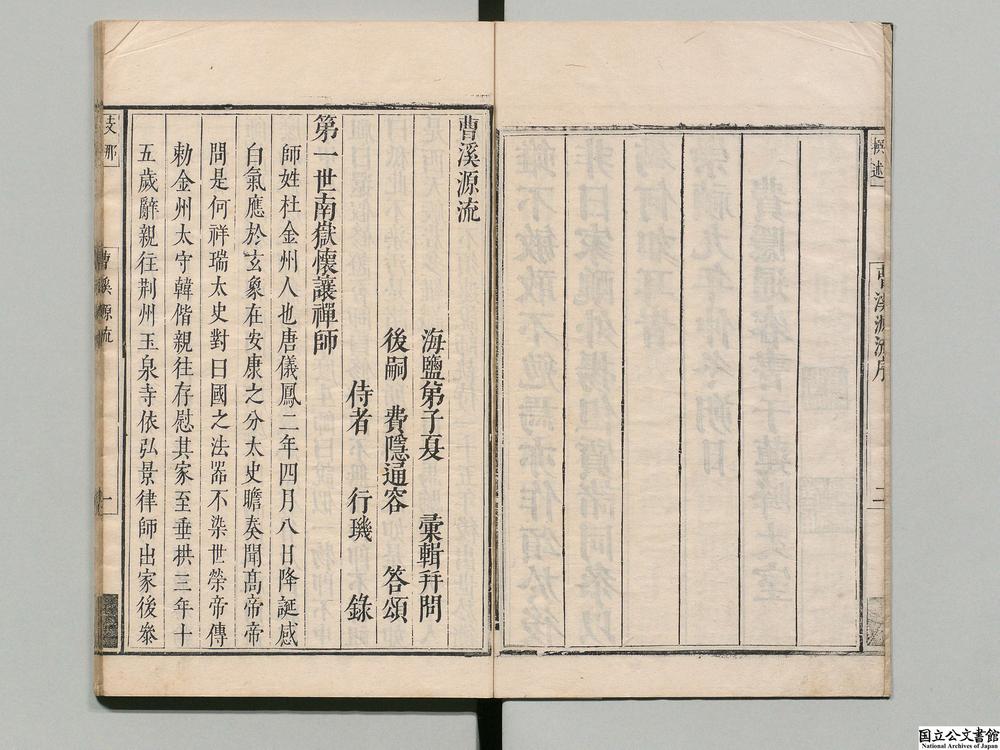 曹溪源流序
二
曹溪源流
海鹽弟子夏 彙輯并問
後嗣 費隱通容 答頌
侍者 行璣 錄
第一世南嶽懷讓禪師
師姓杜金州人也唐儀鳳二年四月八日降誕感
白氣應於玄象在安康之分太史瞻奏聞高帝帝
問是何祥瑞太史對曰國之法器不染世榮帝傳
勅金州太守韓偕親往存慰其家至垂拱三年十
五歲辭親往荆州玉泉寺依弘景律師出家後參
支那
曹溪源流
一
国立公文書館
National Archives of Japan